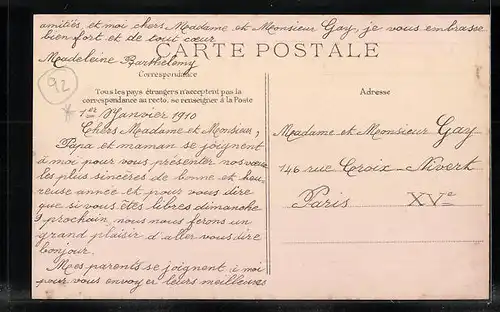 amitiés et moi chers Madame et Monsieur Gay, je vous embrasse
bien fort et de tout cœur
CARTE POSTALE
Madeleine Barthélemy
92
Correspondance
Tous les pays étrangers n'acceptent pas la
correspondance au recto, se renseigner à la Poste
1er Janvier 1910
Chers Madame et Monsieur,
Papa et maman se joignent
à moi pour vous présenter nos vœux
les plus sincères de bonne et heu-
reuse année et pour vous dire
que si vous êtes libres dimanche
prochain nous nous ferons un
grand plaisir d'aller vous dire
bonjour.
Mes parents se joignent à moi
pour vous envoyer leurs meilleures
Adresse
Madame et Monsieur Gay
146 rue Croix-Nivert
Paris XVe